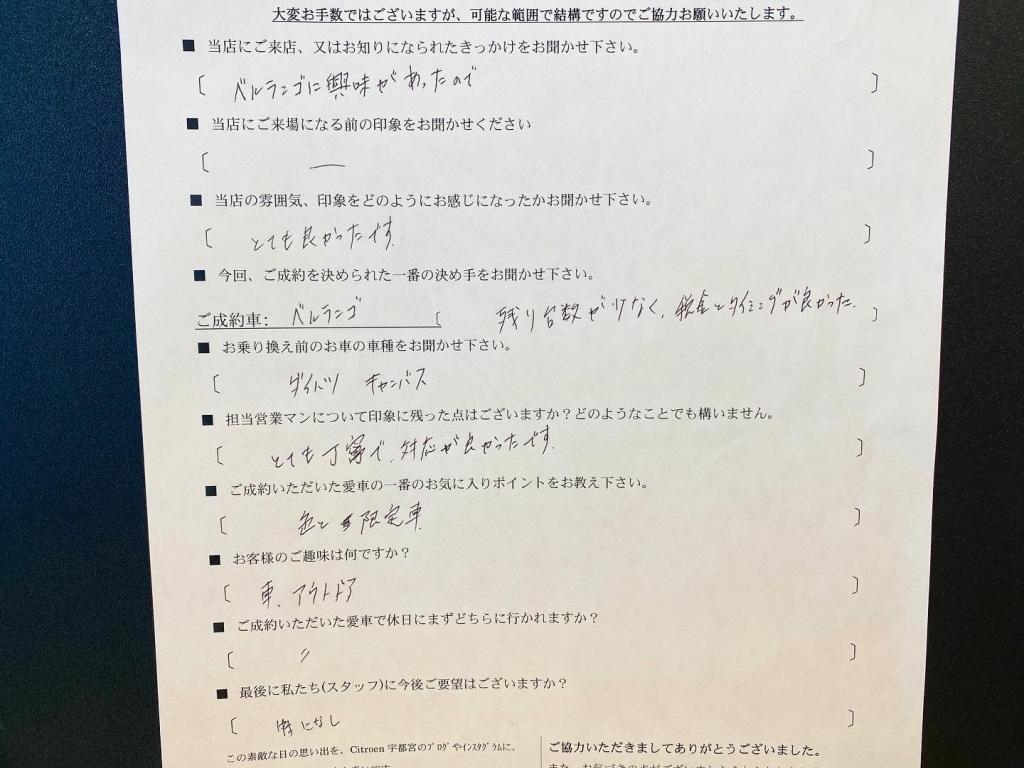 大変お手数ではございますが、可能な範囲で結構ですのでご協力お願いいたします。
■ 当店にご来店、又はお知りになられたきっかけをお聞かせ下さい。
〔 ベルランゴに興味があったので 〕
■ 当店にご来場になる前の印象をお聞かせください
〔 ― 〕
■ 当店の雰囲気、印象をどのようにお感じになったかお聞かせ下さい。
〔 とても良かったです。 〕
■ 今回、ご成約を決められた一番の決め手をお聞かせ下さい。
ご成約車: ベルランゴ 〔 残り台数が少なく、税金とタイミングが良かった。 〕
■ お乗り換え前のお車の車種をお聞かせ下さい。
〔 ダイハツ キャンバス 〕
■ 担当営業マンについて印象に残った点はございますか？どのようなことでも構いません。
〔 とても丁寧で、対応が良かったです。 〕
■ ご成約いただいた愛車の一番のお気に入りポイントをお教え下さい。
〔 色と 限定車 〕
■ お客様のご趣味は何ですか？
〔 車、アウトドア 〕
■ ご成約いただいた愛車で休日にまずどちらに行かれますか？
〔 〃 〕
■ 最後に私たち(スタッフ)に今後ご要望はございますか？
〔 特になし 〕
この素敵な日の思い出を、Citroen 宇都宮のﾌﾞﾛｸﾞやｲﾝｽﾀｸﾞﾗﾑに、
ご協力いただきましてありがとうございました。